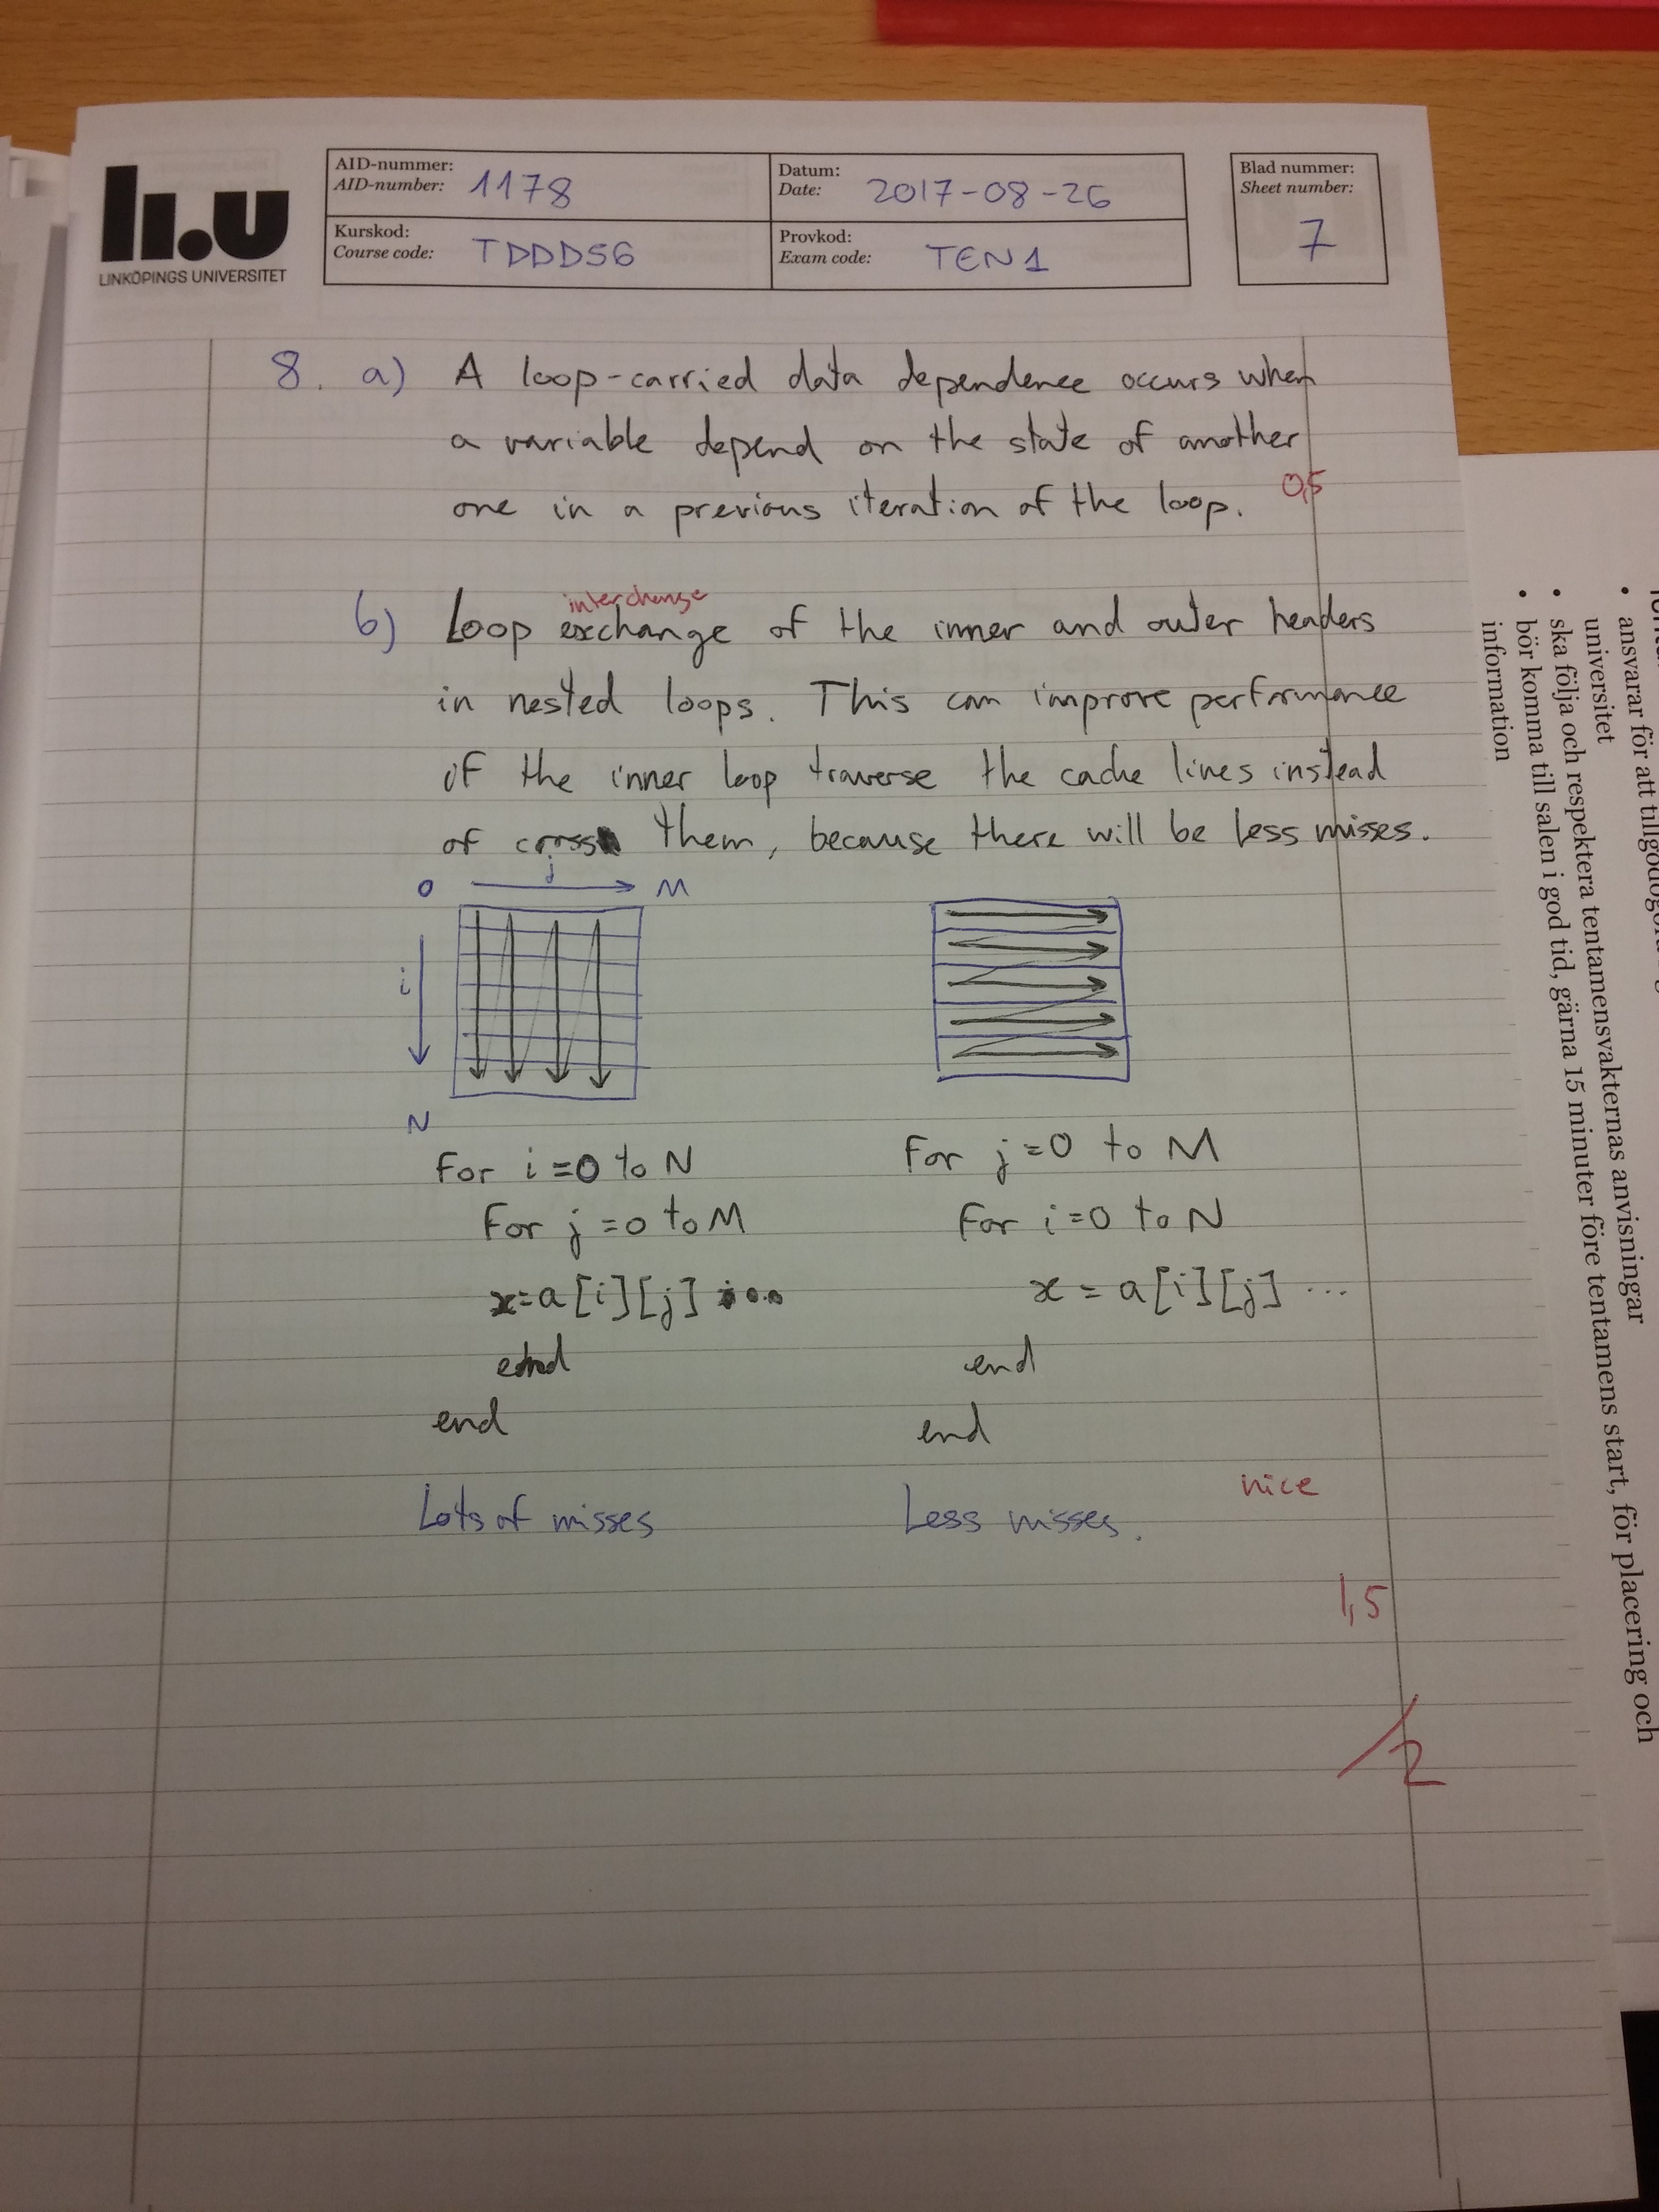 li.u
LINKÖPINGS UNIVERSITET
AID-nummer:
AID-number: 1178
Datum:
Date: 2017-08-26
Kurskod:
Course code: TDDD56
Provkod:
Exam code: TEN1
Blad nummer:
Sheet number:
7
8. a) A loop-carried data dependence occurs when
a variable depend on the state of another
one in a previous iteration of the loop. 0,5
interchange
b) Loop exchange of the inner and outer headers
in nested loops. This can improve performance
if the inner loop traverse the cache lines instead
of cross them, because there will be less misses.
0 j M
i
N
For i=0 to N
For j=0 to M
x=a[i][j] ...
end
end
Lots of misses
For j=0 to M
For i=0 to N
x = a[i][j] ...
end
end
Less misses.
nice
1,5
/2
ansvarar för att
universitet
• ska följa och respektera tentamensvakternas anvisningar
• bör komma till salen i god tid, gärna 15 minuter före tentamens start, för placering och
information